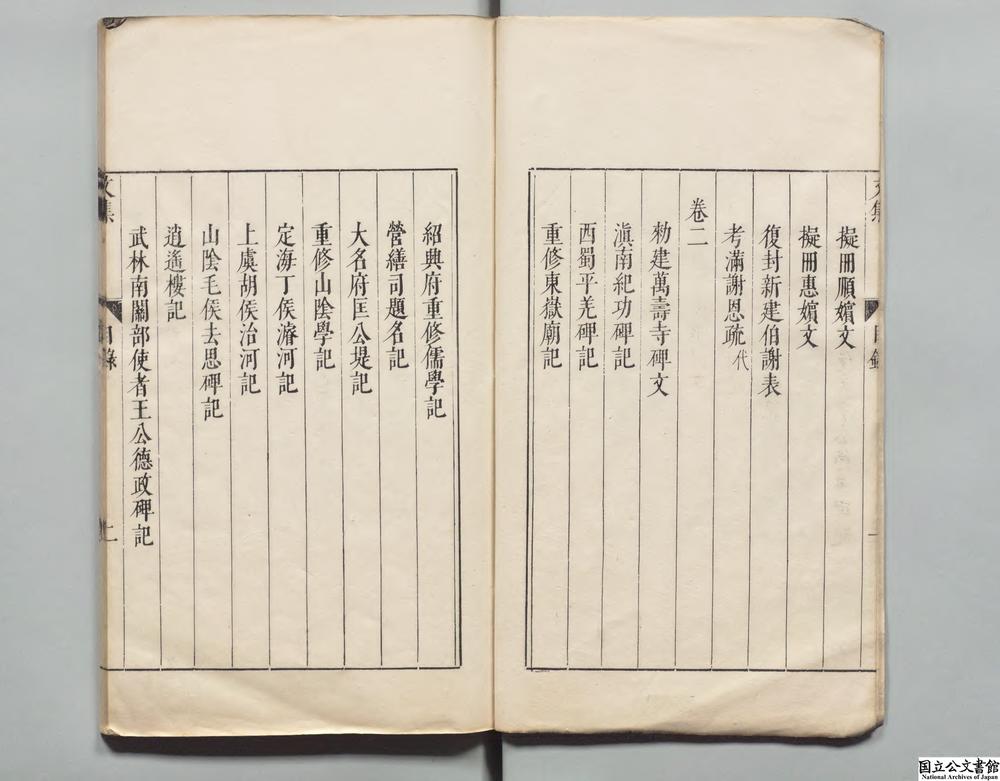 擬冊順嬪文
擬冊惠嬪文
復封新建伯謝表
考滿謝恩疏代
卷二
勑建萬壽寺碑文
滇南紀功碑記
西蜀平羌碑記
重修東嶽廟記
紹興府重修儒學記
營繕司題名記
大名府匡公堤記
重修山陰學記
定海丁侯濬河記
上虞胡侯治河記
山陰毛侯去思碑記
逍遙樓記
武林南關部使者王公德政碑記
文集
目錄
二
国立公文書館
National Archives of Japan